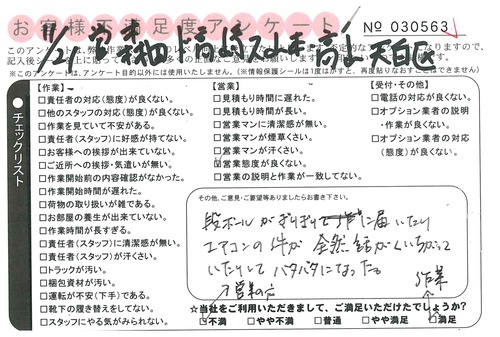 お客様不満足度アンケート
№ 030563
11/2 営業 天白区
このアンケートは、弊
(※このアンケートは、アンケート目的以外には使用いたしません。)(※情報保護シールは1度はがすと、再度貼りなおすことはできません)
チェックリスト
【作業】
□責任者の対応(態度)が良くない。
□他のスタッフの対応(態度)が良くない。
□作業を見ていて不安がある。
□責任者(スタッフ)に好感が持てない。
□お客様への挨拶が出来ていない。
□ご近所への挨拶・気遣いが無い。
□作業開始前の内容確認がなかった。
□作業開始時間が遅れた。
□荷物の取り扱いが雑である。
□お部屋の養生が出来ていない。
□作業時間が長すぎる。
□責任者(スタッフ)に清潔感が無い。
□責任者(スタッフ)が汗くさい。
□トラックが汚い。
□梱包資材が汚い。
□運転が不安(下手)である。
□靴下の履き替えをしてない。
□スタッフにやる気がみられない。
【営業】
□見積もり時間に遅れた。
□見積もり時間が長い。
□営業マンに清潔感が無い。
□営業マンが煙草くさい。
□営業マンが汗くさい。
□営業態度が良くない。
□営業の説明と作業が一致してない。
【受付・その他】
□電話の対応が良くない。
□オプション業者の説明
・作業が良くない。
□オプション業者の対応
(態度)が良くない。
その他、ご意見・ご要望等ありましたらお書き下さい。
段ボールがぎりぎりに届いたり
エアコンの件が全然話がくいちがって
いたりしてバタバタになった。
営業の方
作業
☆当社をご利用いただきまして、ご満足いただけたでしょうか?
□不満 □やや不満 □普通 □やや満足 □満足